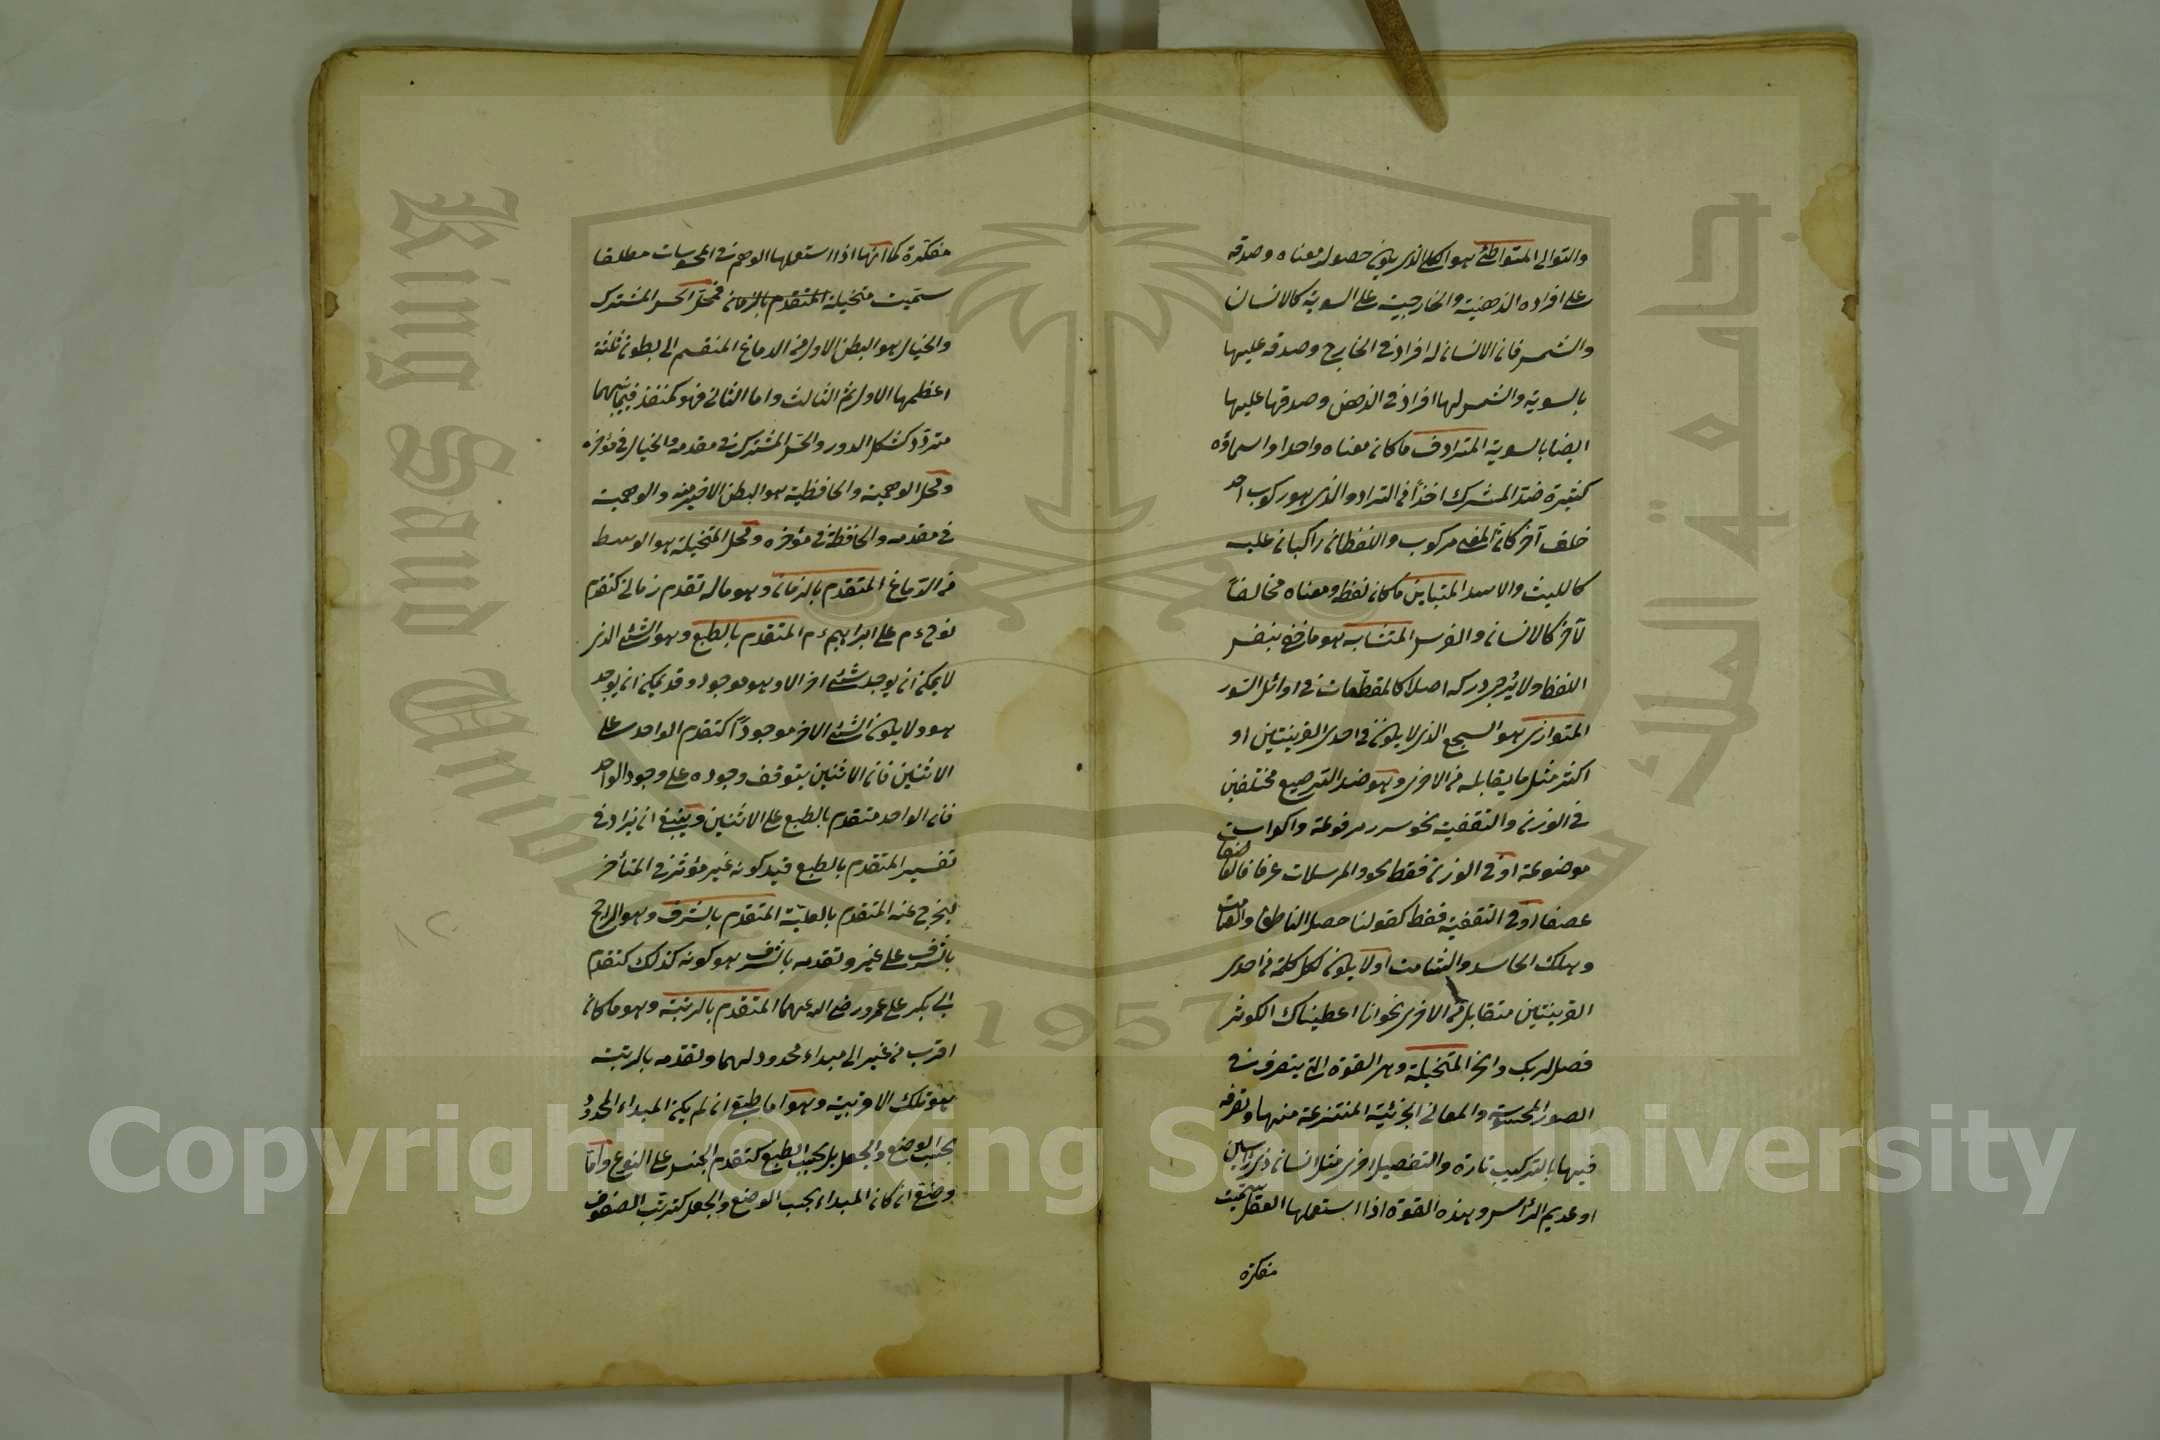 والتوالى المتواطئ هو الكلى الذى يكون حصول معناه وصدقه
على افراده الذهنية والخارجية على السوية كالانسان
والشمس فان الانسان له افراد فى الخارج وصدقه عليها
بالسوية والشمس لها افراد فى الذهن وصدقها عليها
ايضا بالسوية المترادف ما كان معناه واحدا واسماؤه
كثيرة ضد المشترك اخذا فى الترادف الذى هو ركوب احد
خلف آخر كان المعنى مركوب واللفظان راكبان عليه
كالليث والاسد المتباين ما كان لفظه ومعناه مخالفاً
لآخر كالانسان والفرس المتشابه هو ما خفى بنفس
اللفظ ولا يرجى دركه اصلا كالمقطعات فى اوائل السور
المتوازى هو السجع الذى لا يكون فى احدى القرينتين او
اكثر مثل ما يقابله من الاخرى وهو ضد الترصيع مختلفين
فى الوزن والتقفية نحو سرر مرفوعة واكواب
موضوعة او فى الوزن فقط نحو والمرسلات عرفا فالعاصفات
عصفا او فى التقفية فقط كقولنا حصل الناطق والصامت
وهلك الحاسد والشامت او لا يكون لكل كلمة من احدى
القرينتين مقابل من الاخرى نحو انا اعطيناك الكوثر
فصل لربك وانحر المتخيلة وهى القوة التى يتصرف فى
الصور المحسوسة والمعانى الجزئية المنتزعة منها وتصرفه
فيها بالتركيب تارة والتفصيل اخرى مثل انسان ذى رأسين
او عديم الرأس وهذه القوة اذا استعملها العقل سميت
مفكرة
مفكرة كما انها اذا استعملها الوهم فى المحسوسات مطلقا
سميت متخيلة المتقدم بالزمان فمحل الحس المشترك
والخيال هو البطن الاول من الدماغ المنقسم الى بطون ثلثة
اعظمها الاول ثم الثالث واما الثانى فهو كمنفذ فيما بينهما
مزرد كشكل الدود والحس المشترك فى مقدمه والخيال فى مؤخره
ومحل الوهمية والحافظية هو البطن الاخير منه والوهمية
فى مقدمه والحافظة فى مؤخره ومحل المتخيلة هو الوسط
من الدماغ المتقدم بالزمان وهو ماله تقدم زمانى كتقدم
نوح ءم على ابراهيم ءم المتقدم بالطبع وهو الشئ الذى
لا يمكن ان يوجد شئ اخر الا وهو موجود وقد يمكن ان يوجد
هو ولا يكون الشئ الاخر موجوداً كتقدم الواحد على
الاثنين فان الاثنين يتوقف وجوده على وجود الواحد
فان الواحد متقدم بالطبع على الاثنين وينبغى ان يزاد فى
تفسير المتقدم بالطبع قيد كونه غير مؤثر فى المتأخر
ليخرج عنه المتقدم بالعلية المتقدم بالشرف وهو الراجح
بالشرف على غيره وتقدمه بالشرف هو كونه كذلك كتقدم
ابى بكر على عمر رضى الله عنهما المتقدم بالرتبة وهو ما كان
اقرب من غيره الى مبداء محدود لهما وتقدمه بالرتبة
هو تلك الاقربية وهو اما طبعى ان لم يكن المبداء المحدود
بحسب الوضع والجعل بل بحسب الطبع كتقدم الجنس على النوع واما
وضعى ان كان المبداء بحسب الوضع والجعل كترتب الصفوف
Copyright © King Saud University
King Saud University
جامعة الملك سعود
1957